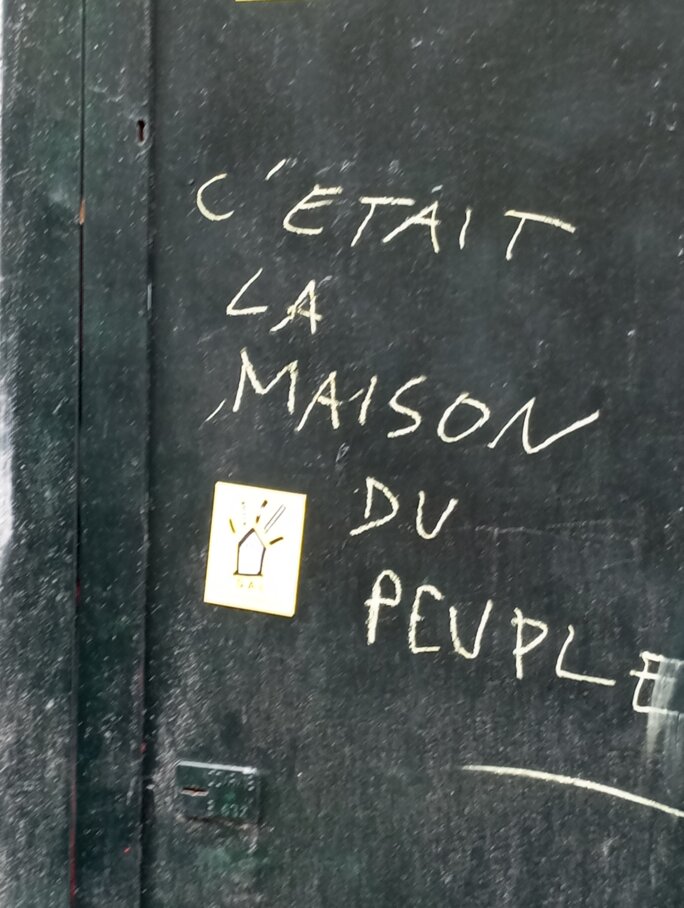 C'ETAIT
LA
MAISON
DU
PEUPLE